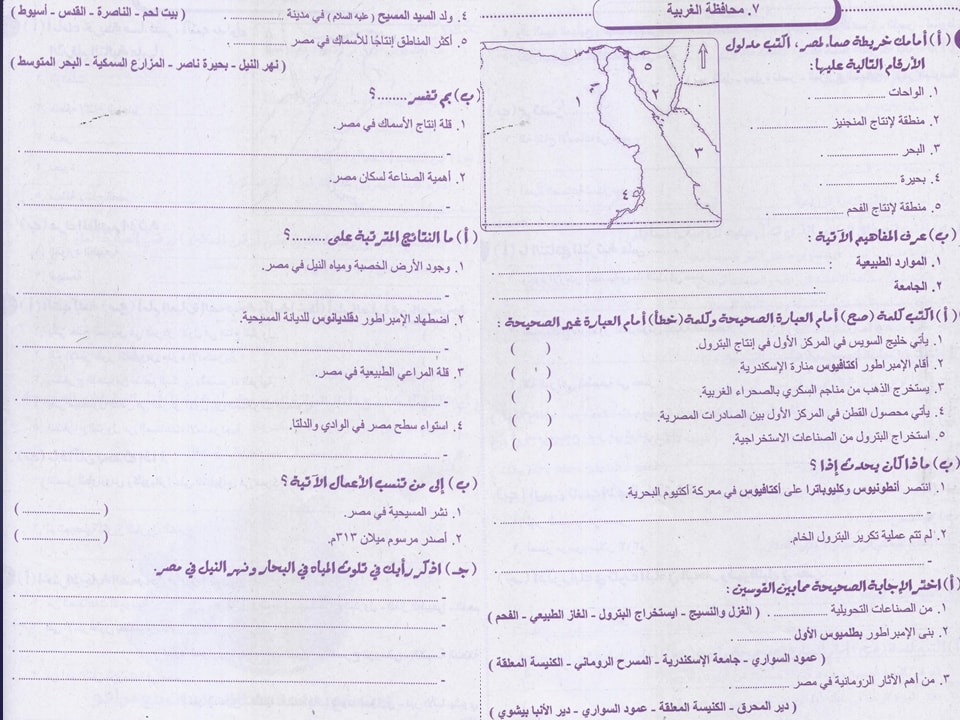 ٧. محافظة الغربية
(أ) أمامك خريطة صماء لمصر، اكتب مدلول
الأرقام التالية عليها:
١. الواحات ............
٢. منطقة لإنتاج المنجنيز ............
٣. البحر ............
٤. بحيرة ............
٥. منطقة لإنتاج الفحم
١
٢
٣
٤
٥
(ب) عرف المفاهيم الآتية:
١. الموارد الطبيعية :
٢. الجامعة :
(أ) اكتب كلمة (صح) أمام العبارة الصحيحة وكلمة (خطأ) أمام العبارة غير الصحيحة :
١. يأتي خليج السويس في المركز الأول في إنتاج البترول. ( )
٢. أقام الإمبراطور أكتافيوس منارة الإسكندرية. ( )
٣. يستخرج الذهب من مناجم السكري بالصحراء الغربية. ( )
٤. يأتي محصول القطن في المركز الأول بين الصادرات المصرية. ( )
٥. استخراج البترول من الصناعات الاستخراجية. ( )
(ب) ماذا كان يحدث إذا ؟
١. انتصر أنطونيوس وكليوباترا على أكتافيوس في معركة أكتيوم البحرية.
-
٢. لم تتم عملية تكرير البترول الخام.
-
(أ) اختر الإجابة الصحيحة مما بين القوسين:
١. من الصناعات التحويلية ............ ( الغزل والنسيج - ايستخراج البترول - الغاز الطبيعي - الفحم )
٢. بنى الإمبراطور بطلميوس الأول ............
( عمود السواري - جامعة الإسكندرية - المسرح الروماني - الكنيسة المعلقة )
٣. من أهم الآثار الرومانية في مصر ............
( دير المحرق - الكنيسة المعلقة - عمود السواري - دير الأنبا بيشوي )
٤. ولد السيد المسيح (عليه السلام) في مدينة ............ ( بيت لحم - الناصرة - القدس - أسيوط )
٥. أكثر المناطق إنتاجًا للأسماك في مصر ............
( نهر النيل - بحيرة ناصر - المزارع السمكية - البحر المتوسط )
(ب) بم تفسر ........؟
١. قلة إنتاج الأسماك في مصر.
-
٢. أهمية الصناعة لسكان مصر.
-
(أ) ما النتائج المترتبة على ........؟
١. وجود الأرض الخصبة ومياه النيل في مصر.
-
٢. اضطهاد الإمبراطور دقلديانوس للديانة المسيحية.
-
٣. قلة المراعي الطبيعية في مصر.
-
٤. استواء سطح مصر في الوادي والدلتا.
-
(ب) إلى من تنسب الأعمال الآتية ؟
١. نشر المسيحية في مصر. ( ............ )
٢. أصدر مرسوم ميلان ٣١٣م. ( ............ )
(جـ) اذكر رأيك في تلوث المياه في البحار ونهر النيل في مصر.
-
-
-
-